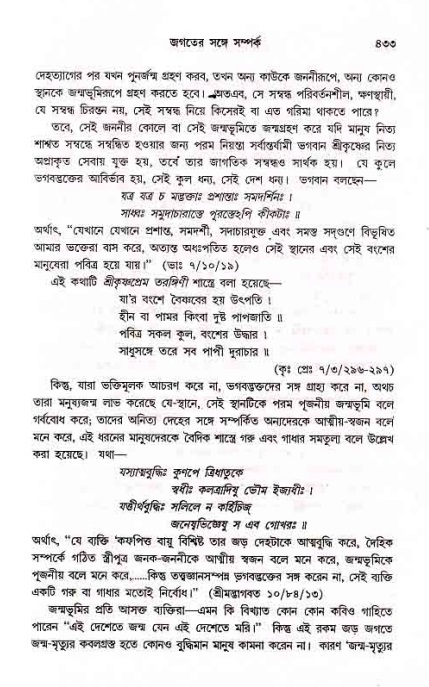 জগতের সঙ্গে সম্পর্ক ৪৩৩
দেহত্যাগের পর যখন পুনর্জন্ম গ্রহণ করব, তখন অন্য কাউকে জননীরূপে, অন্য কোনও
স্থানকে জন্মভূমিরূপে গ্রহণ করতে হবে। অতএব, সে সম্বন্ধ পরিবর্তনশীল, ক্ষণস্থায়ী,
যে সম্বন্ধ চিরন্তন নয়, সেই সম্বন্ধ নিয়ে কিসেরই বা এত গরিমা থাকতে পারে?
তবে, সেই জননীর কোলে বা সেই জন্মভূমিতে জন্মগ্রহণ করে যদি মানুষ নিত্য
শাশ্বত সম্বন্ধে সম্বন্ধিত হওয়ার জন্য পরম নিয়ন্তা সর্বান্তর্যামী ভগবান শ্রীকৃষ্ণের নিত্য
অপ্রাকৃত সেবায় যুক্ত হয়, তবে তার জাগতিক সম্বন্ধও সার্থক হয়। যে কুলে
ভগবদ্ভক্তের আবির্ভাব হয়, সেই কুল ধন্য, সেই দেশ ধন্য। ভগবান বলছেন—
যত্র যত্র চ মদ্ভক্তাঃ প্রশান্তাঃ সমদর্শিনঃ ।
সাধবঃ সমুদাচারাস্তে পূয়ন্তেঽপি কীকটাঃ ॥
অর্থাৎ, “যেখানে যেখানে প্রশান্ত, সমদর্শী, সদাচারযুক্ত এবং সমস্ত সদ্‌গুণে বিভূষিত
আমার ভক্তেরা বাস করে, অত্যন্ত অধঃপতিত হলেও সেই স্থানের এবং সেই বংশের
মানুষেরা পবিত্র হয়ে যায়।” (ভাঃ ৭/১০/১৯)
এই কথাটি শ্রীকৃষ্ণপ্রেম তরঙ্গিণী শাস্ত্রে বলা হয়েছে—
যা'র বংশে বৈষ্ণবের হয় উৎপতি ।
হীন বা পামর কিংবা দুষ্ট পাপজাতি ॥
পবিত্র সকল কুল, বংশের উদ্ধার ।
সাধুসঙ্গে তরে সব পাপী দুরাচার ॥
(কৃঃ প্রেঃ ৭/৩/২৯৬-২৯৭)
কিন্তু, যারা ভক্তিমূলক আচরণ করে না, ভগবদ্ভক্তদের সঙ্গ গ্রাহ্য করে না, অথচ
তারা মনুষ্যজন্ম লাভ করেছে যে-স্থানে, সেই স্থানটিকে পরম পূজনীয় জন্মভূমি বলে
গর্ববোধ করে; তাদের অনিত্য দেহের সঙ্গে সম্পর্কিত অন্যদেরকে আত্মীয়-স্বজন বলে
মনে করে, এই ধরনের মানুষদেরকে বৈদিক শাস্ত্রে গরু এবং গাধার সমতুল্য বলে উল্লেখ
করা হয়েছে। যথা—
যস্যাত্মবুদ্ধিঃ কুণপে ত্রিধাতুকে
স্বধীঃ কলত্রাদিষু ভৌম ইজ্যধীঃ ।
যত্তীর্থবুদ্ধিঃ সলিলে ন কর্হিচিজ্
জনেষ্বভিজ্ঞেষু স এব গোখরঃ ॥
অর্থাৎ, “যে ব্যক্তি 'কফপিত্ত বায়ু বিশিষ্ট তার জড় দেহটাকে আত্মবুদ্ধি করে, দৈহিক
সম্পর্কে গঠিত স্ত্রীপুত্র জনক-জননীকে আত্মীয় স্বজন বলে মনে করে, জন্মভূমিকে
পূজনীয় বলে মনে করে,.....কিন্তু তত্ত্বজ্ঞানসম্পন্ন ভগবদ্ভক্তের সঙ্গ করেন না, সেই ব্যক্তি
একটি গরু বা গাধার মতোই নির্বোধ।” (শ্রীমদ্ভাগবত ১০/৮৪/১৩)
জন্মভূমির প্রতি আসক্ত ব্যক্তিরা—এমন কি বিখ্যাত কোন কোন কবিও গাহিতে
পারেন “এই দেশেতে জন্ম যেন এই দেশেতে মরি।” কিন্তু এই রকম জড় জগতে
জন্ম-মৃত্যুর কবলগ্রস্ত হতে কোনও বুদ্ধিমান মানুষ কামনা করেন না। কারণ 'জন্ম-মৃত্যুর